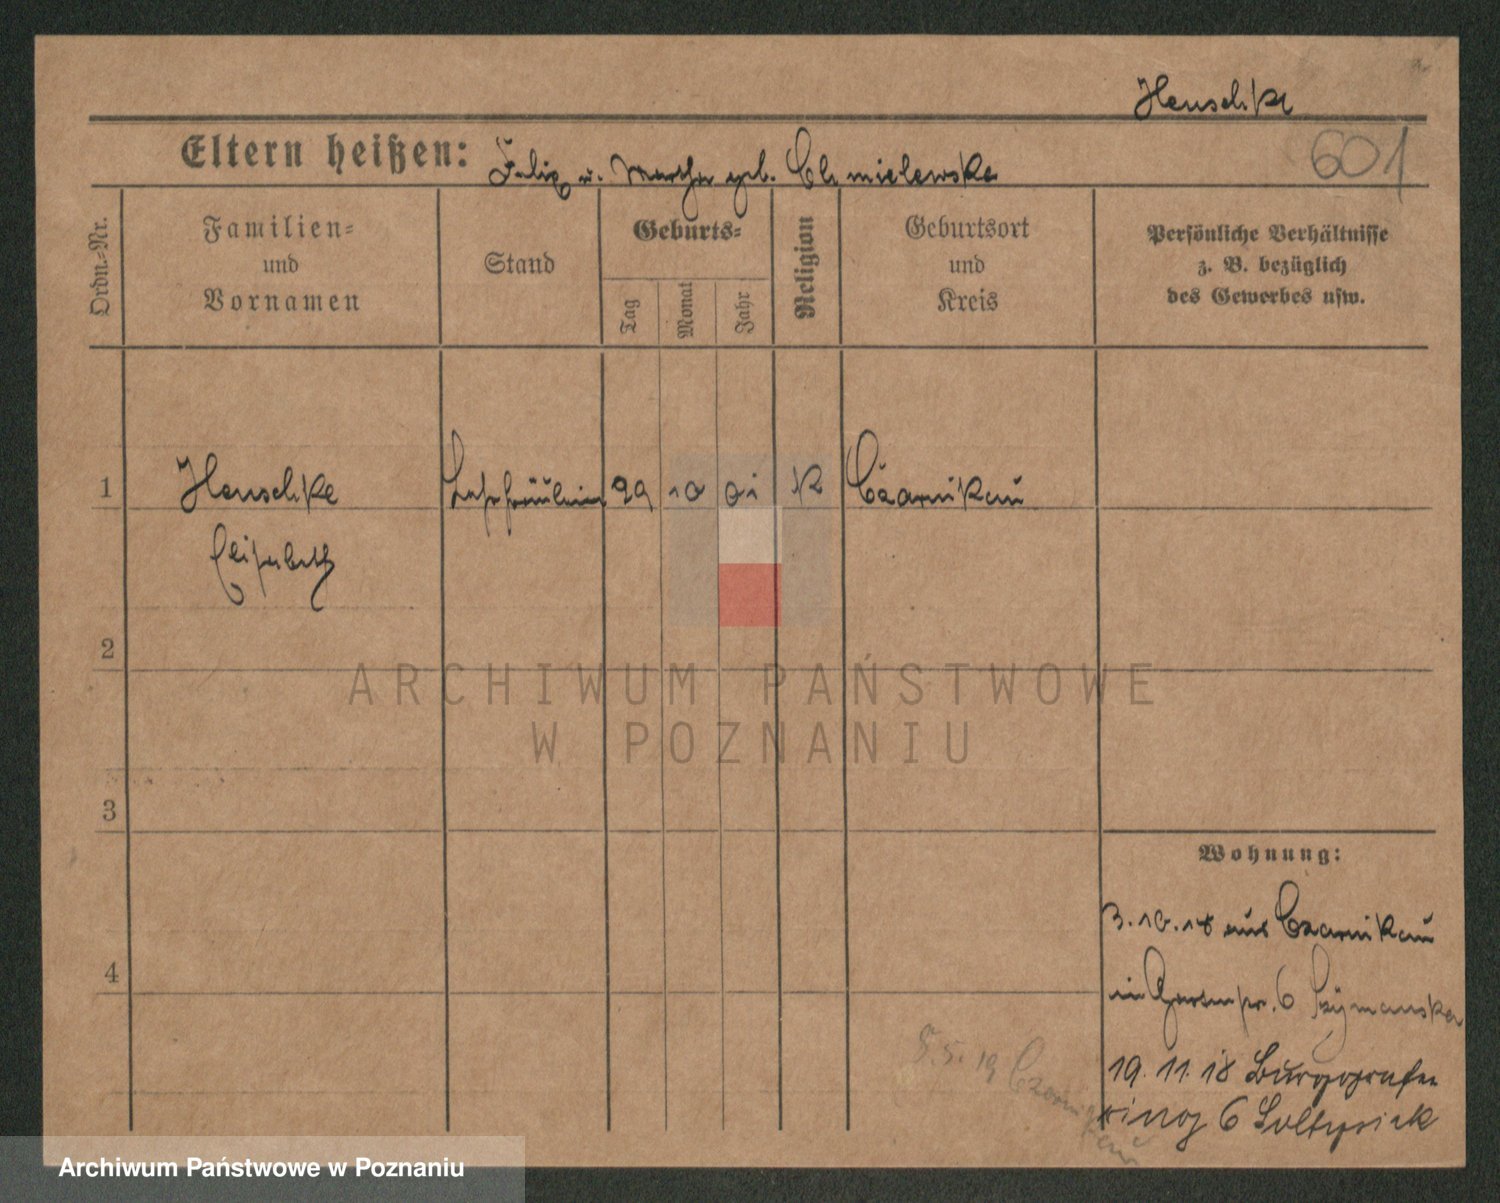 Henschke
601
Eltern heißen: Felix u. Martha geb. Chmielewska
Ordn.-Nr.
Familien=
und
Vornamen
Stand
Geburts=
Tag
Monat
Jahr
Religion
Geburtsort
und
Kreis
Persönliche Verhältnisse
z. B. bezüglich
des Gewerbes usw.
1 Henschke Lehrfräulein 29 10 01 K Czarnikau
Elisabeth
2
3
4
Wohnung:
3.10.18 aus Czarnikau
in Gartenstr. 6 Szymanska
19.11.18 Burggrafen
ring 6 Soltysiak
5.5.19 Czarnikau
ARCHIWUM PAŃSTWOWE
W POZNANIU
Archiwum Państwowe w Poznaniu